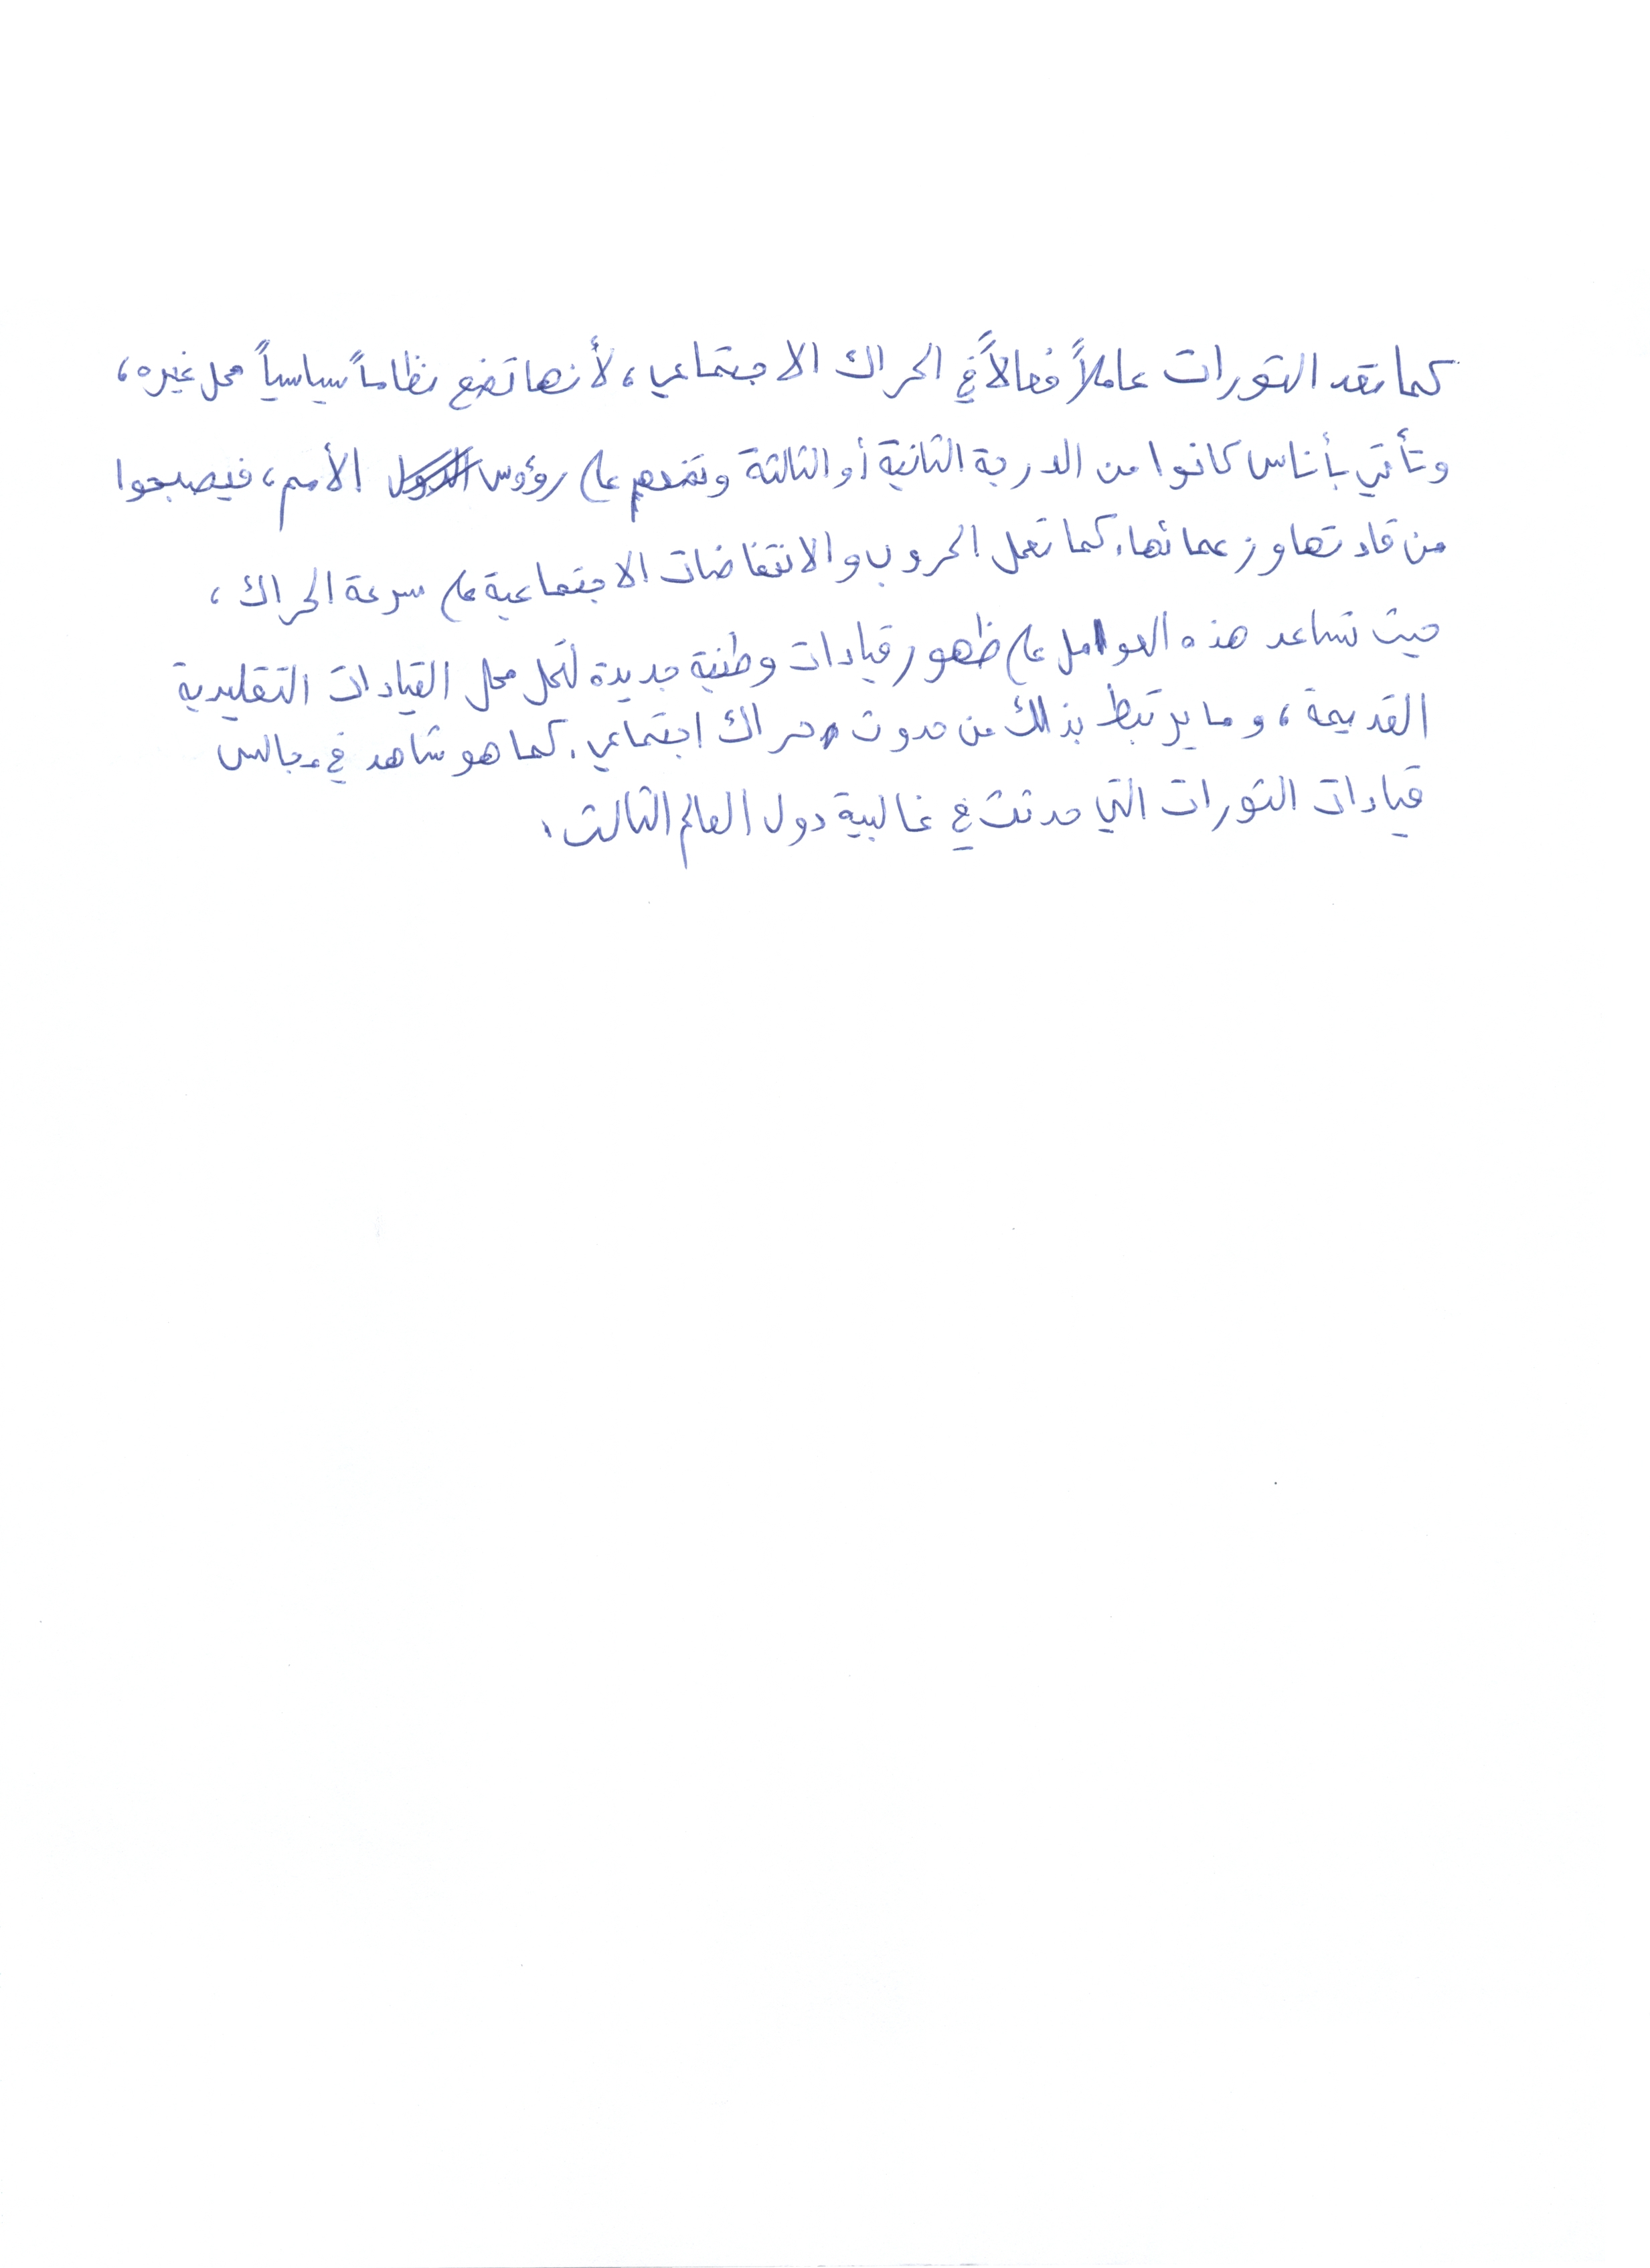 كما تعد الثورات عاملاً فعالاً في الحراك الاجتماعي، لأنها تضع نظاماً سياسياً محل غيره،
وتأتي بأناس كانوا من الدرجة الثانية أو الثالثة وتضعهم على رؤوس الأمم، فيصبحوا
من قادتها وزعمائها. كما تعمل الحروب والانتفاضات الاجتماعية على سرعة الحراك،
حيث تساعد هذه العوامل على ظهور قيادات وطنية جديدة لتحل محل القيادات التقليدية
القديمة، وما يرتبط بذلك من حدوث حراك اجتماعي. كما هو شاهد في مجالس
قيادات الثورات التي حدثت في غالبية دول العالم الثالث.